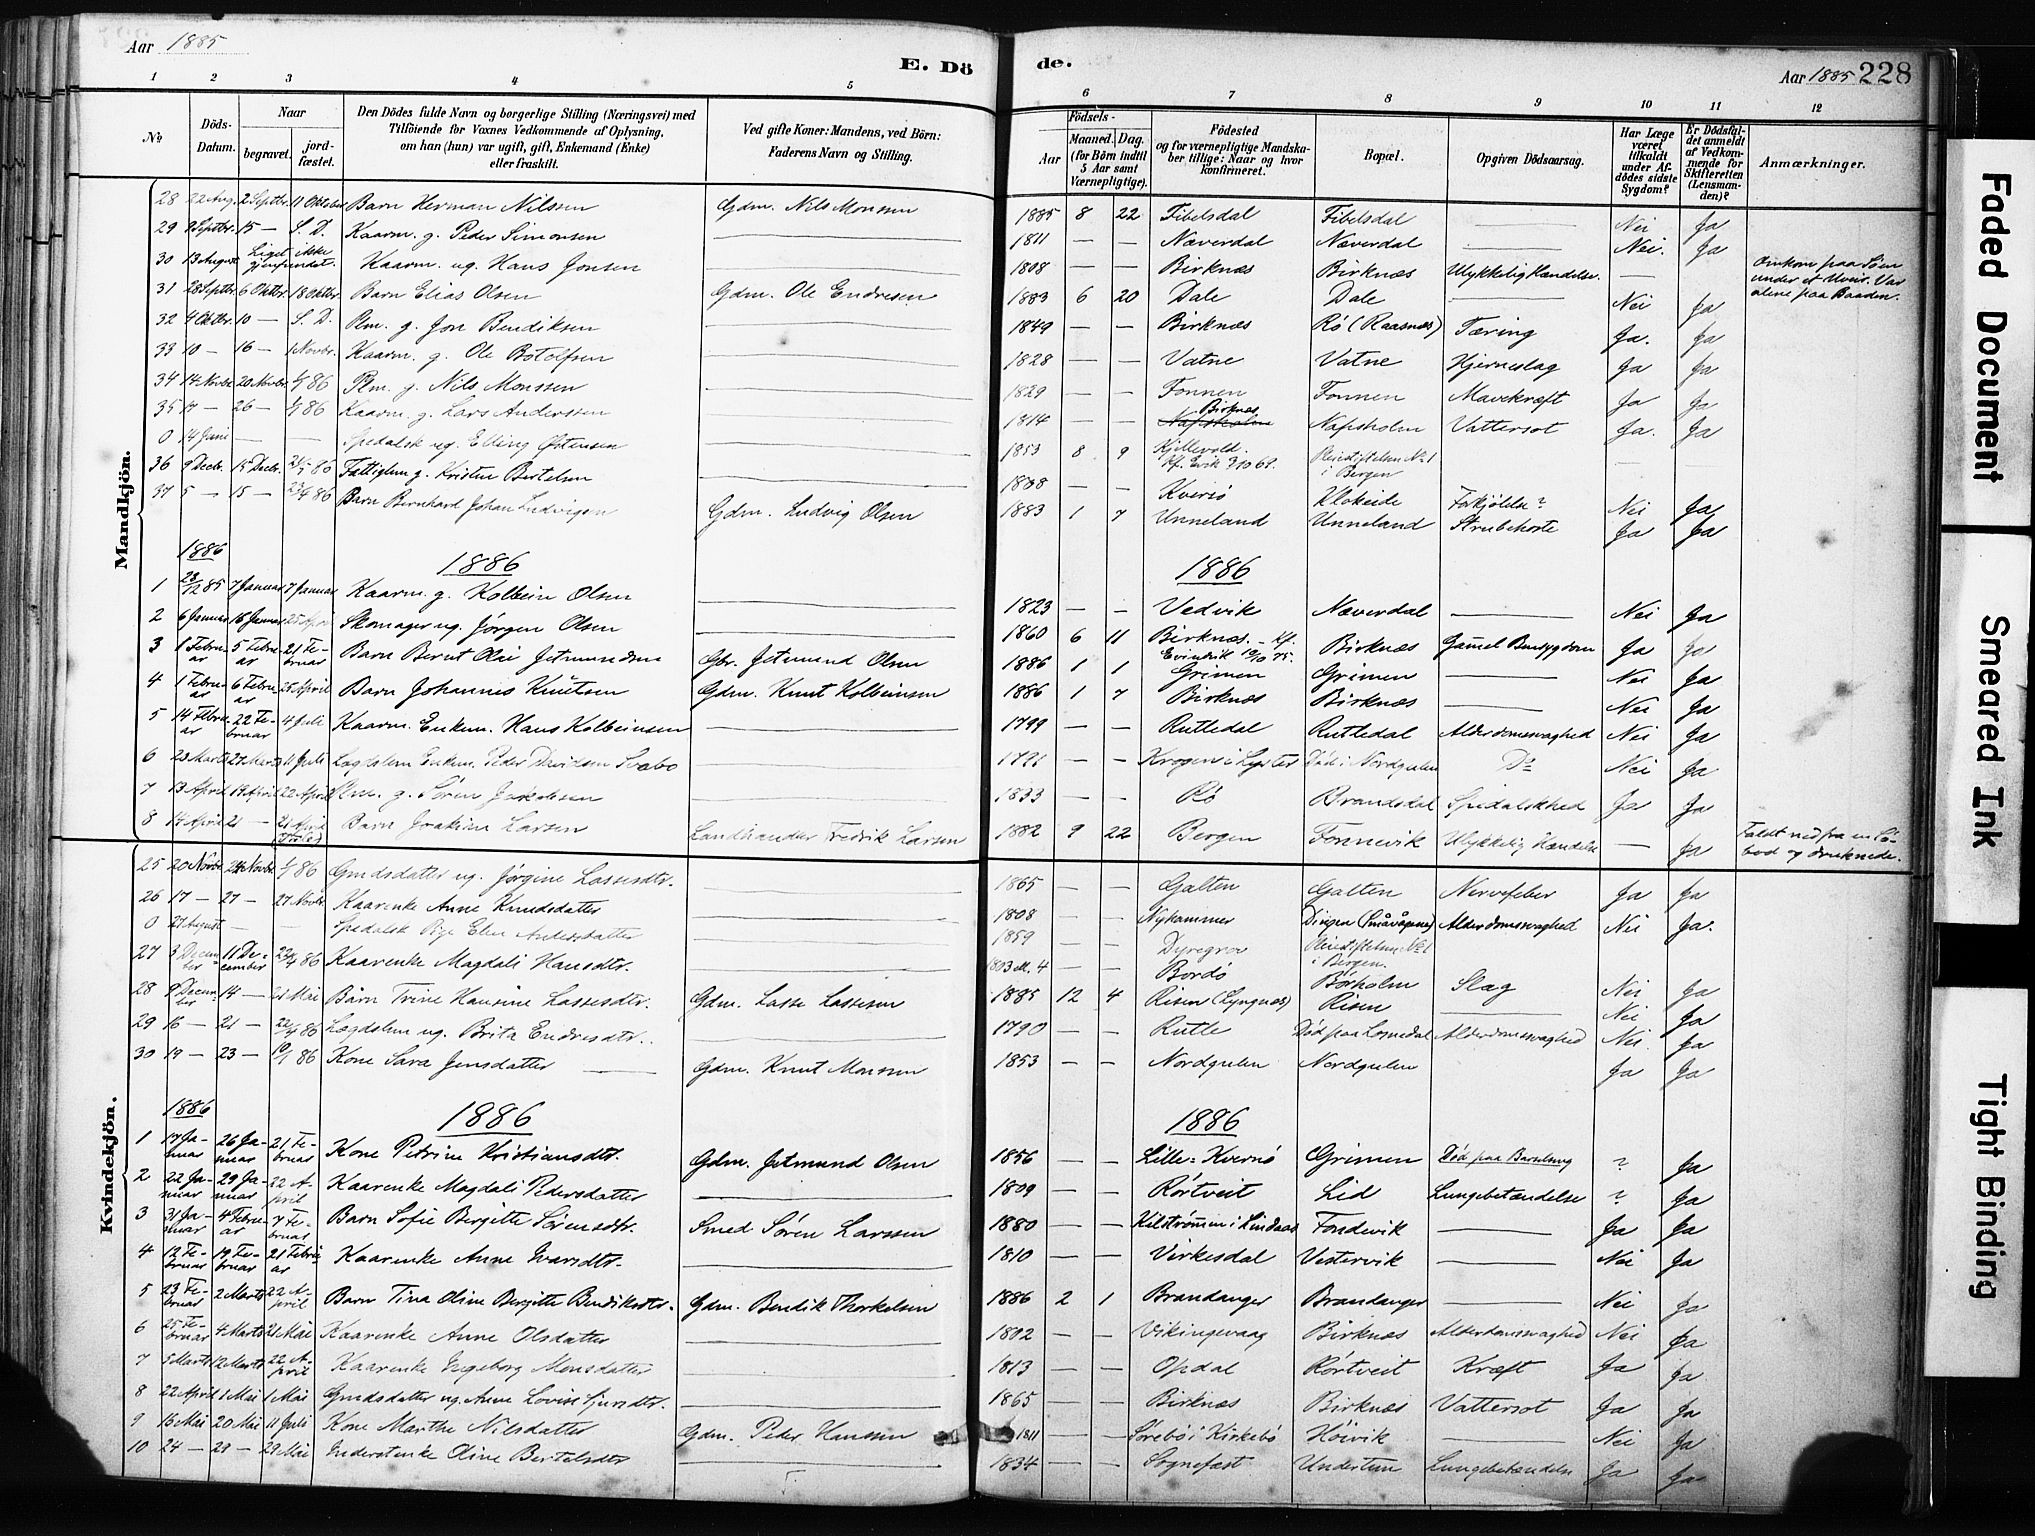 Aar 1885
E. Döde.
Aar 1885 228
1 2 3 4 5 6 7 8 9 10 11 12
No
Döds-Datum.
Naar
begravet.
jordfæstet.
Den Dödes fulde Navn og borgerlige Stilling (Næringsvei) med
Tilföiende for Voxnes Vedkommende af Oplysning,
om han (hun) var ugift, gift, Enkemand (Enke)
eller fraskilt.
Ved gifte Koner: Mandens, ved Börn:
Faderens Navn og Stilling.
Födsels-
Aar
Maaned. Dag.
(for Börn indtil
5 Aar samt
Værnepligtige).
Födested
og for værnepligtige Mandska-
ber tillige: Naar og hvor
konfirmeret.
Bopæl.
Opgiven Dödsaarsag.
Har Læge
været
tilkaldt
under Af-
dödes sidste
Sygdom?
Er Dödsfal-
det anmeldt
af Vedkom-
mende for
Skifteretten
(Lensman-
den)?
Anmærkninger.
Mandkjön.
28 22 Aug. 2 Septbr. 11 Oktober Barn Herman Nilssen Gdm. Nils Monssen 1885 8 22 Fibelsdal Fibelsdal — Nei Ja
29 9 Septbr. 15 — S. D. Kaarm. g. Peder Simonsen — 1811 — — Næverdal Næverdal — Nei. Ja
30 13 August Liget ikke gjenfundet. Kaarm. ug. Hans Jonsen — 1808 — — Birknæs Birknæs Ulykkelig Hændelse. — Omkom paa Søen under et Uveir. Var alene paa Baaden.
31 28 Septbr. 6 Oktbr. 18 Oktbr. Barn Elias Olsen Gdm. Ole Endresen 1883 6 20 Dale Dale — Nei Ja
32 4 Oktbr. 10 — S. D. Plm. g. Jon Bendiksen — 1849 — — Birknæs Rö (Raasnæs) Tæring Ja. Ja
33 10 — 16 — 1 Novbr. Kaarm. g. Ole Botolfsen — 1828 — — Vatne Vatne Hjerneslag Ja Ja
34 14 Novbr. 20 Novbr. 1/1 86 Plm. g. Nils Monssen — 1829 — — Fonnen Fonnen Mavekræft Ja Ja
35 17 — 26 — 1/1 86 Kaarm. g. Lars Anderssen — 1814 — — Birknæs Napsholm Napsholm Vattersot Ja. Ja
0 14 Juni — — Spedalsk ug. Elling Østensen — 1853 8 9 Kjillevold. Kf. Evik 3/10 69. Pleiestiftelsen No 1 i Bergen
36 9 Decbr. 15 Decbr. Fattiglem g. Kristen Bertelsen — Kversö Klokeide Forkjölelse? Nei Ja
37 5 — 15 — 23/4 86 Barn Bernhard Johan Ludvigsen Gdm. Ludvig Olsen 1883 1 7 Unneland Unneland Strubehoste Ja Ja
1886 1886 1886
1 28/12 85 7 Januar 7 Januar Kaarm. g. Kolbein Olsen — 1823 — — Vedvik Næverdal — Nei Ja
2 6 Januar 16 Januar 25 April Skomager ug. Jörgen Olsen — 1860 6 11 Birknæs. Kf. Evindvik 10/10 75. Birknæs Gammel Bensygdom Ja Ja
3 1 Februar 5 Februar 21 Februar Barn Bernt Olai Jetmundsen Gbr. Jetmund Olsen 1886 1 1 Grimen Grimen — Nei Ja
4 1 Februar 6 Februar 25 April Barn Johannes Knutsen Gdm. Knut Kolbeinsen 1886 1 7 Birknæs Birknæs — Nei Ja
5 14 Februar 22 Februar 4 Juli Kaarm. Enkem. Hans Kolbeinsen — 1799 — — Rutledal Rutledal Alderdomssvaghed Nei Ja
6 23 Marts 27 Marts 11 Juli Lægdslem Enkem. Peder Davidsen Svabo — — — Krogen i Lyster Død i Nordgulen Do Nei Ja
7 13 April 19 April 22 April Plm. g. Sören Jakobsen — 1833 — — Rö Brandsdal Spedalskhed Ja Ja
8 14 April 21 — 21 April Barn Joakim Larsen Landhandler Fredrik Larsen 1882 9 22 Bergen Fonnevik Ulykkelig Hændelse — Ja Faldt ned fra en Söbod og druknede.
Kvindekjön.
25 20 Novbr. 24 Novbr. 1/1 86 Gmdsdatter ug. Jörgine Lassesdtr. — 1865 — — Galten Galten Nervefeber Ja Ja
26 17 — 27 — 27 Novbr. Kaarenke Anne Knudsdatter — 1808 — — Nyhammer Dingen (Småvågene) Alderdomssvaghed Nei Ja.
0 27 August — — Spedalsk Pige Elen Andersdatter — 1859 Dyregrov Pleiestiftelsen No 1 i Bergen.
27 3 December 11 December Kaarenke Magdali Hansdtr. — — — Bordö Borholm Slag Nei Ja
28 9 December 14 — 21 Mai Barn Trine Hansine Lassesdtr. Gdm. Lasse Lassesen 1885 12 4 Risen (Lyngnæs) Risen — Nei Ja
29 16 — 21 — Lægdslem ug. Brita Endresdtr. 1790 — — Rutle Död paa Losnedal Alderdomssvaghed Nei. Ja
30 19 — 23 — 10/1 86 Kone Sara Jensdatter — Gdm. Knut Monssen 1853 — — Nordgulen Nordgulen Ja Ja
1886 1886 1886
1 17 Januar 26 Januar 21 Februar Kone Petrine Kristiansdtr. Gdm. Jetmund Olsen 1856 — — Lille-Kversö Grimen Död paa Barselseng ? Ja
2 22 Januar 29 Januar 22 April Kaarenke Magdali Pedersdatter — 1809 — — Rörtveit Lid Lungebetændelse ? Ja
3 31 Januar 4 Februar 7 Februar Barn Sofie Bergitte Sörensdtr. Smed Sören Larssen 1880 — — Kilströmmen i Lindaas Fondevik — Ja Ja
4 12 Februar 19 Februar 21 Februar Kaarenke Anne Ivarsdtr. — 1810 — — Virkesdal Vestervik — Nei Ja
5 23 Februar 2 Marts 22 April Barn Tina Oline Bergitte Bendiksdtr. Gdm. Bendik Thorkelsen 1886 2 1 Brandanger Brandanger — Nei Ja
6 25 Februar 4 Marts 21 Mai Kaarenke Anne Olsdatter — 1802 — — Vikingevaag Birknæs Alderdomssvaghed Nei Ja
7 5 Marts 12 Marts 22 April Kaarenke Ingeborg Monsdatter — 1813 — — Opdal Rörtveit Kræft Ja Ja
8 22 April 1 Mai 1 Mai Gmdsdatter ug. Anne Lovise Sjursdtr. — 1865 — — Birknæs Birknæs Vattersot Ja Ja
9 16 Mai 20 Mai 11 Juli Kone Marthe Nilsdatter Gdm. Peder Hanssen 1811 — — Sörebö i Kirkebö Höivik — Nei Ja
10 24 — 29 — 29 Mai Inderstenke Oline Bertelsdtr — 1834 — — Sognefæst Undertun Lungebetændelse Ja Ja
Faded Document
Smeared Ink
Tight Binding